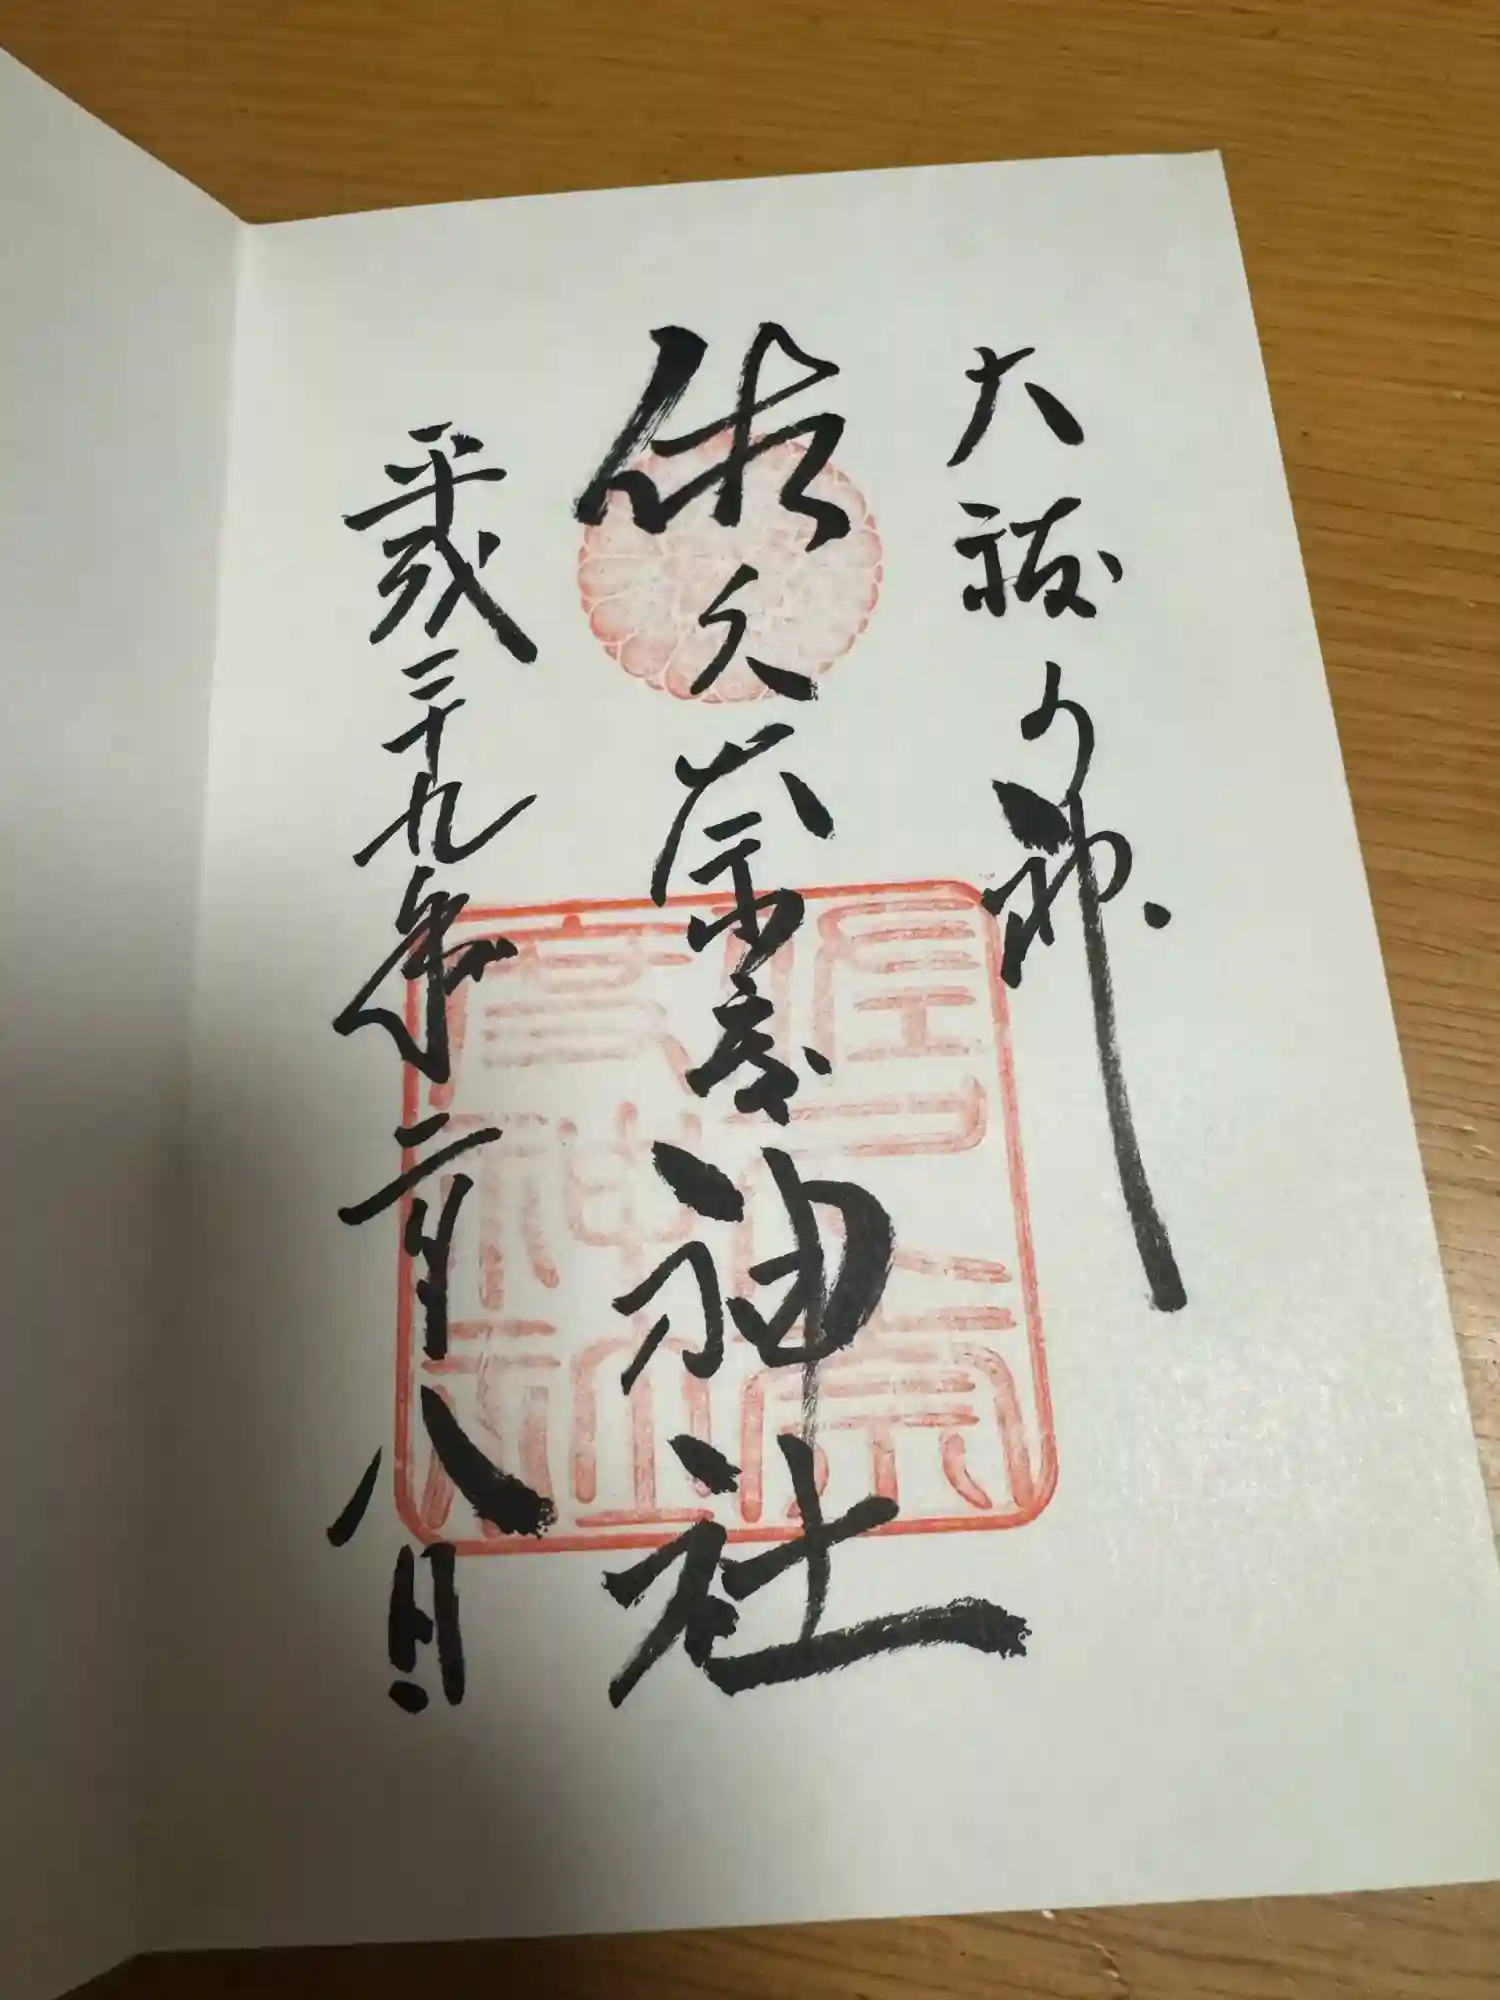 大祓乃神
佐久奈度神社
佐久奈度神社
平成二十九年二月八日